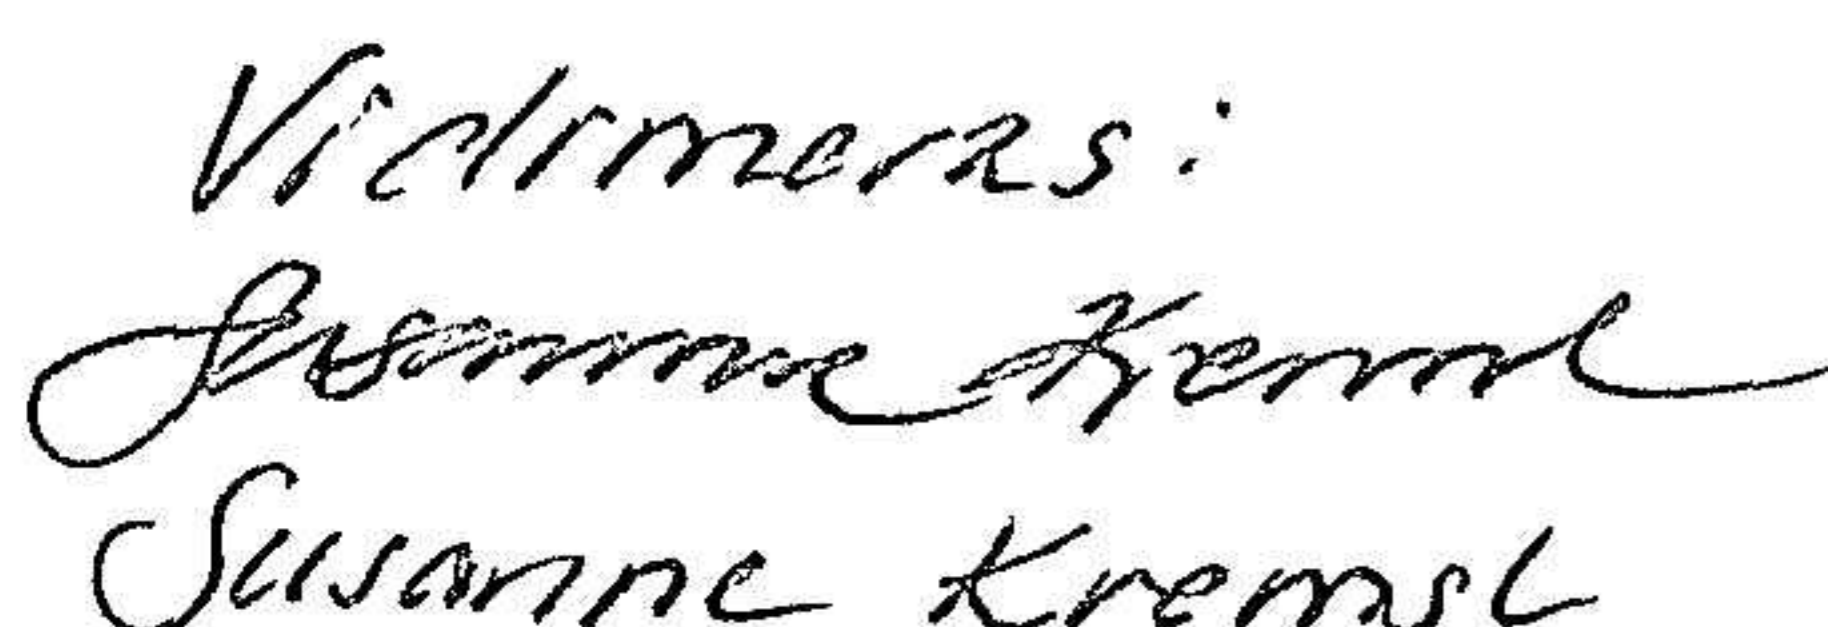 Vidimeras:
Susanne Kremsl
Susanne Kremsl